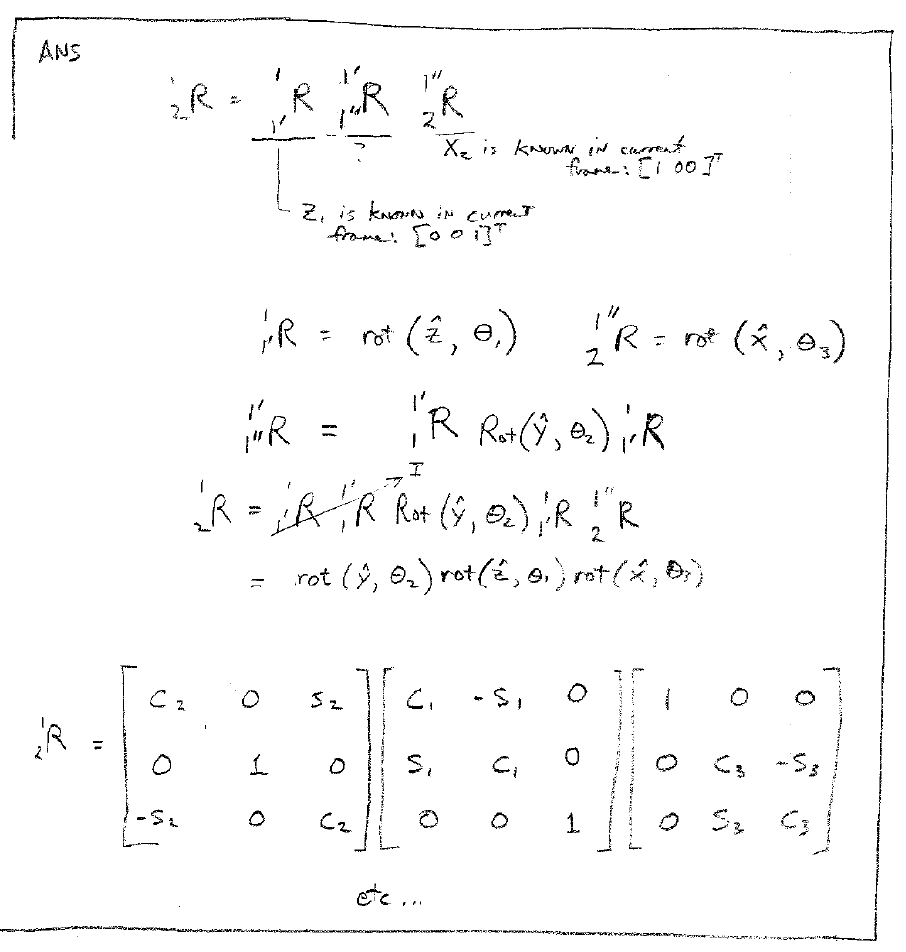 ANS
¹₂R = ¹₁′R ¹′₁″R ¹″₂R
?
X₂ is known in current
frame: [1 0 0]ᵀ
Z₁ is known in current
frame: [0 0 1]ᵀ
¹₁′R = rot (ẑ, θ₁) ¹″₂R = rot (x̂, θ₃)
¹′₁″R = ¹′₁R Rot(ŷ, θ₂) ¹₁′R
I
¹₂R = ¹₁′R ¹′₁R Rot (ŷ, θ₂) ¹₁′R ¹″₂R
= rot (ŷ, θ₂) rot(ẑ, θ₁) rot(x̂, θ₃)
¹₂R = [C₂ 0 S₂] [C₁ -S₁ 0] [1 0 0]
[0 1 0] [S₁ C₁ 0] [0 C₃ -S₃]
[-S₂ 0 C₂] [0 0 1] [0 S₃ C₃]
etc ...